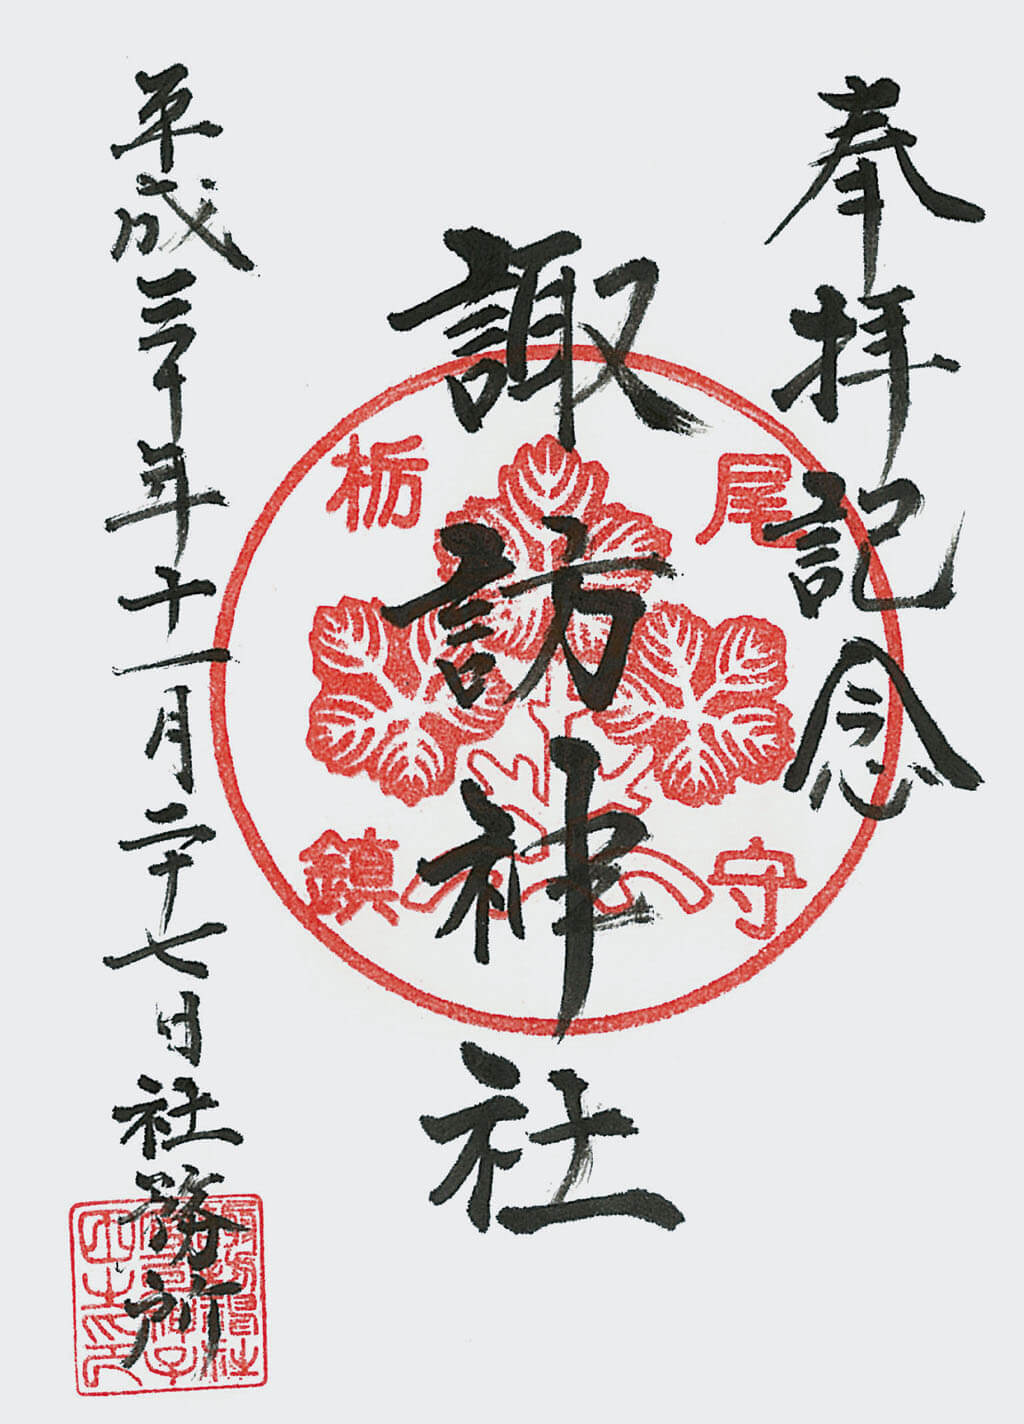 奉拝記念
諏訪神社
平成三十年十一月二十七日社務所
栃尾
鎮守